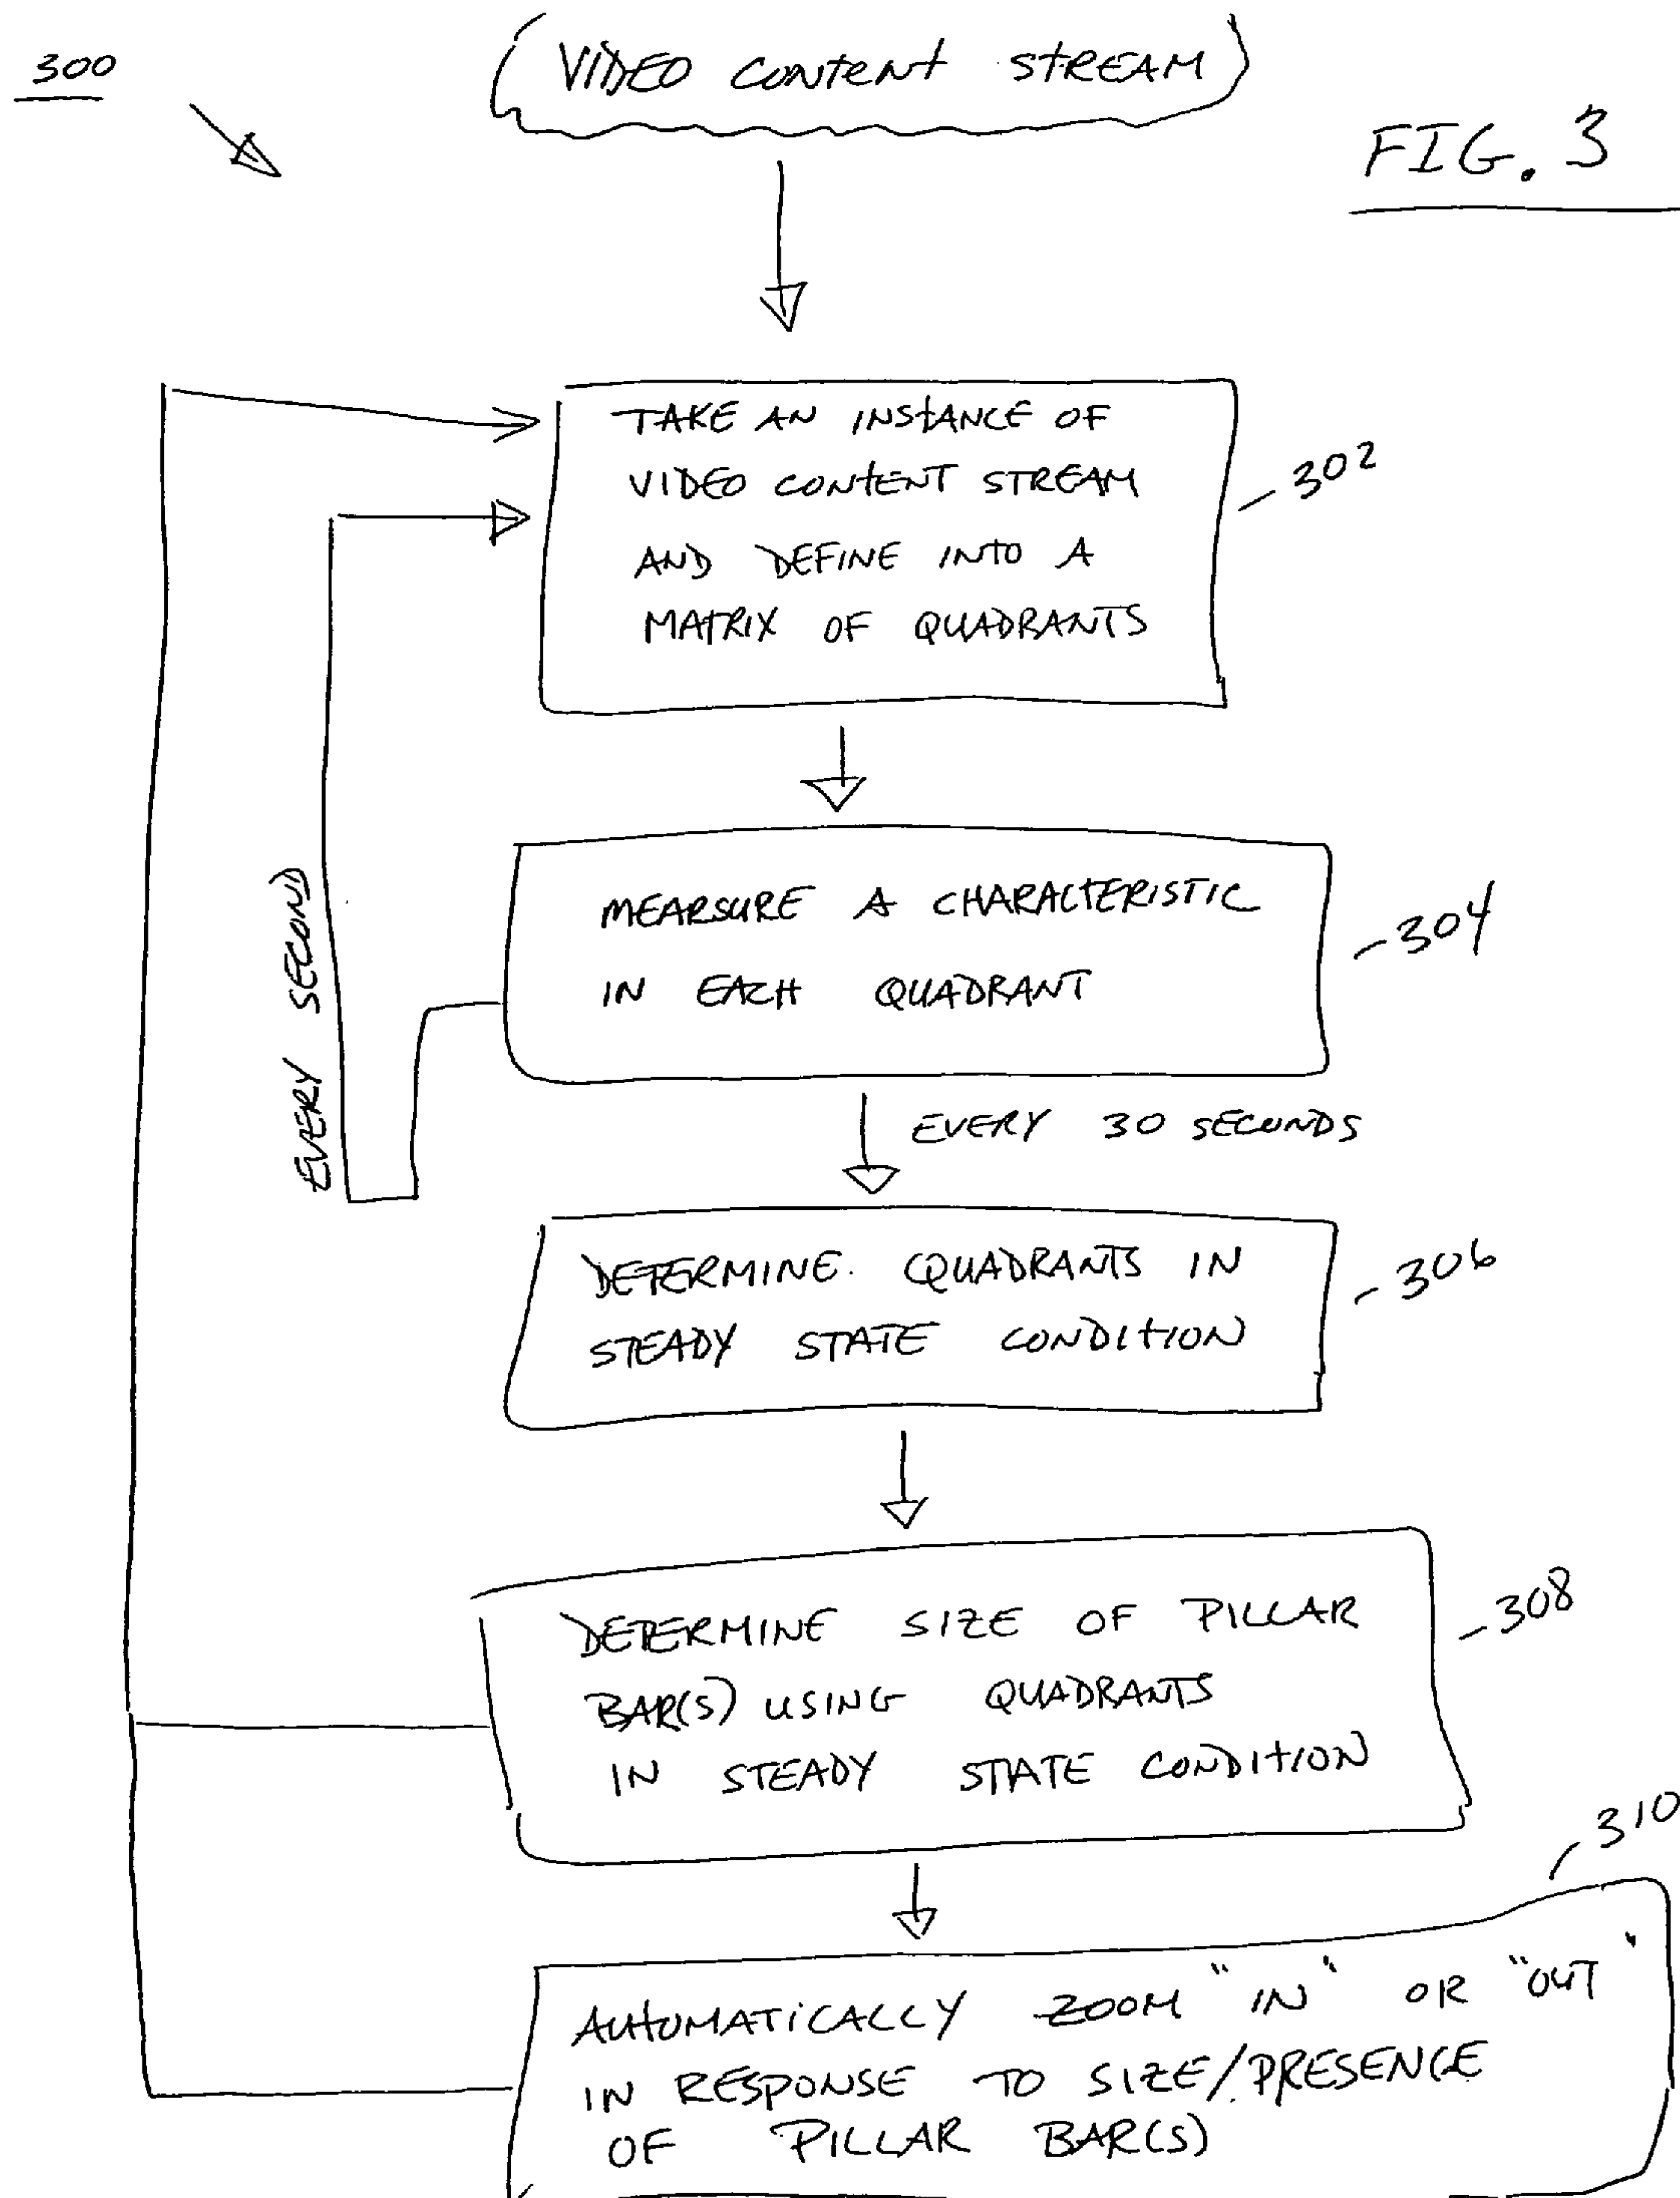 300
(VIDEO CONTENT STREAM)
FIG. 3
TAKE AN INSTANCE OF
VIDEO CONTENT STREAM
AND DEFINE INTO A
MATRIX OF QUADRANTS
302
MEARSURE A CHARACTERISTIC
IN EACH QUADRANT
304
EVERY SECOND
EVERY 30 SECONDS
DETERMINE QUADRANTS IN
STEADY STATE CONDITION
306
DETERMINE SIZE OF PILLAR
BAR(S) USING QUADRANTS
IN STEADY STATE CONDITION
308
310
AUTOMATICALLY ZOOM "IN" OR "OUT"
IN RESPONSE TO SIZE/PRESENCE
OF PILLAR BAR(S)